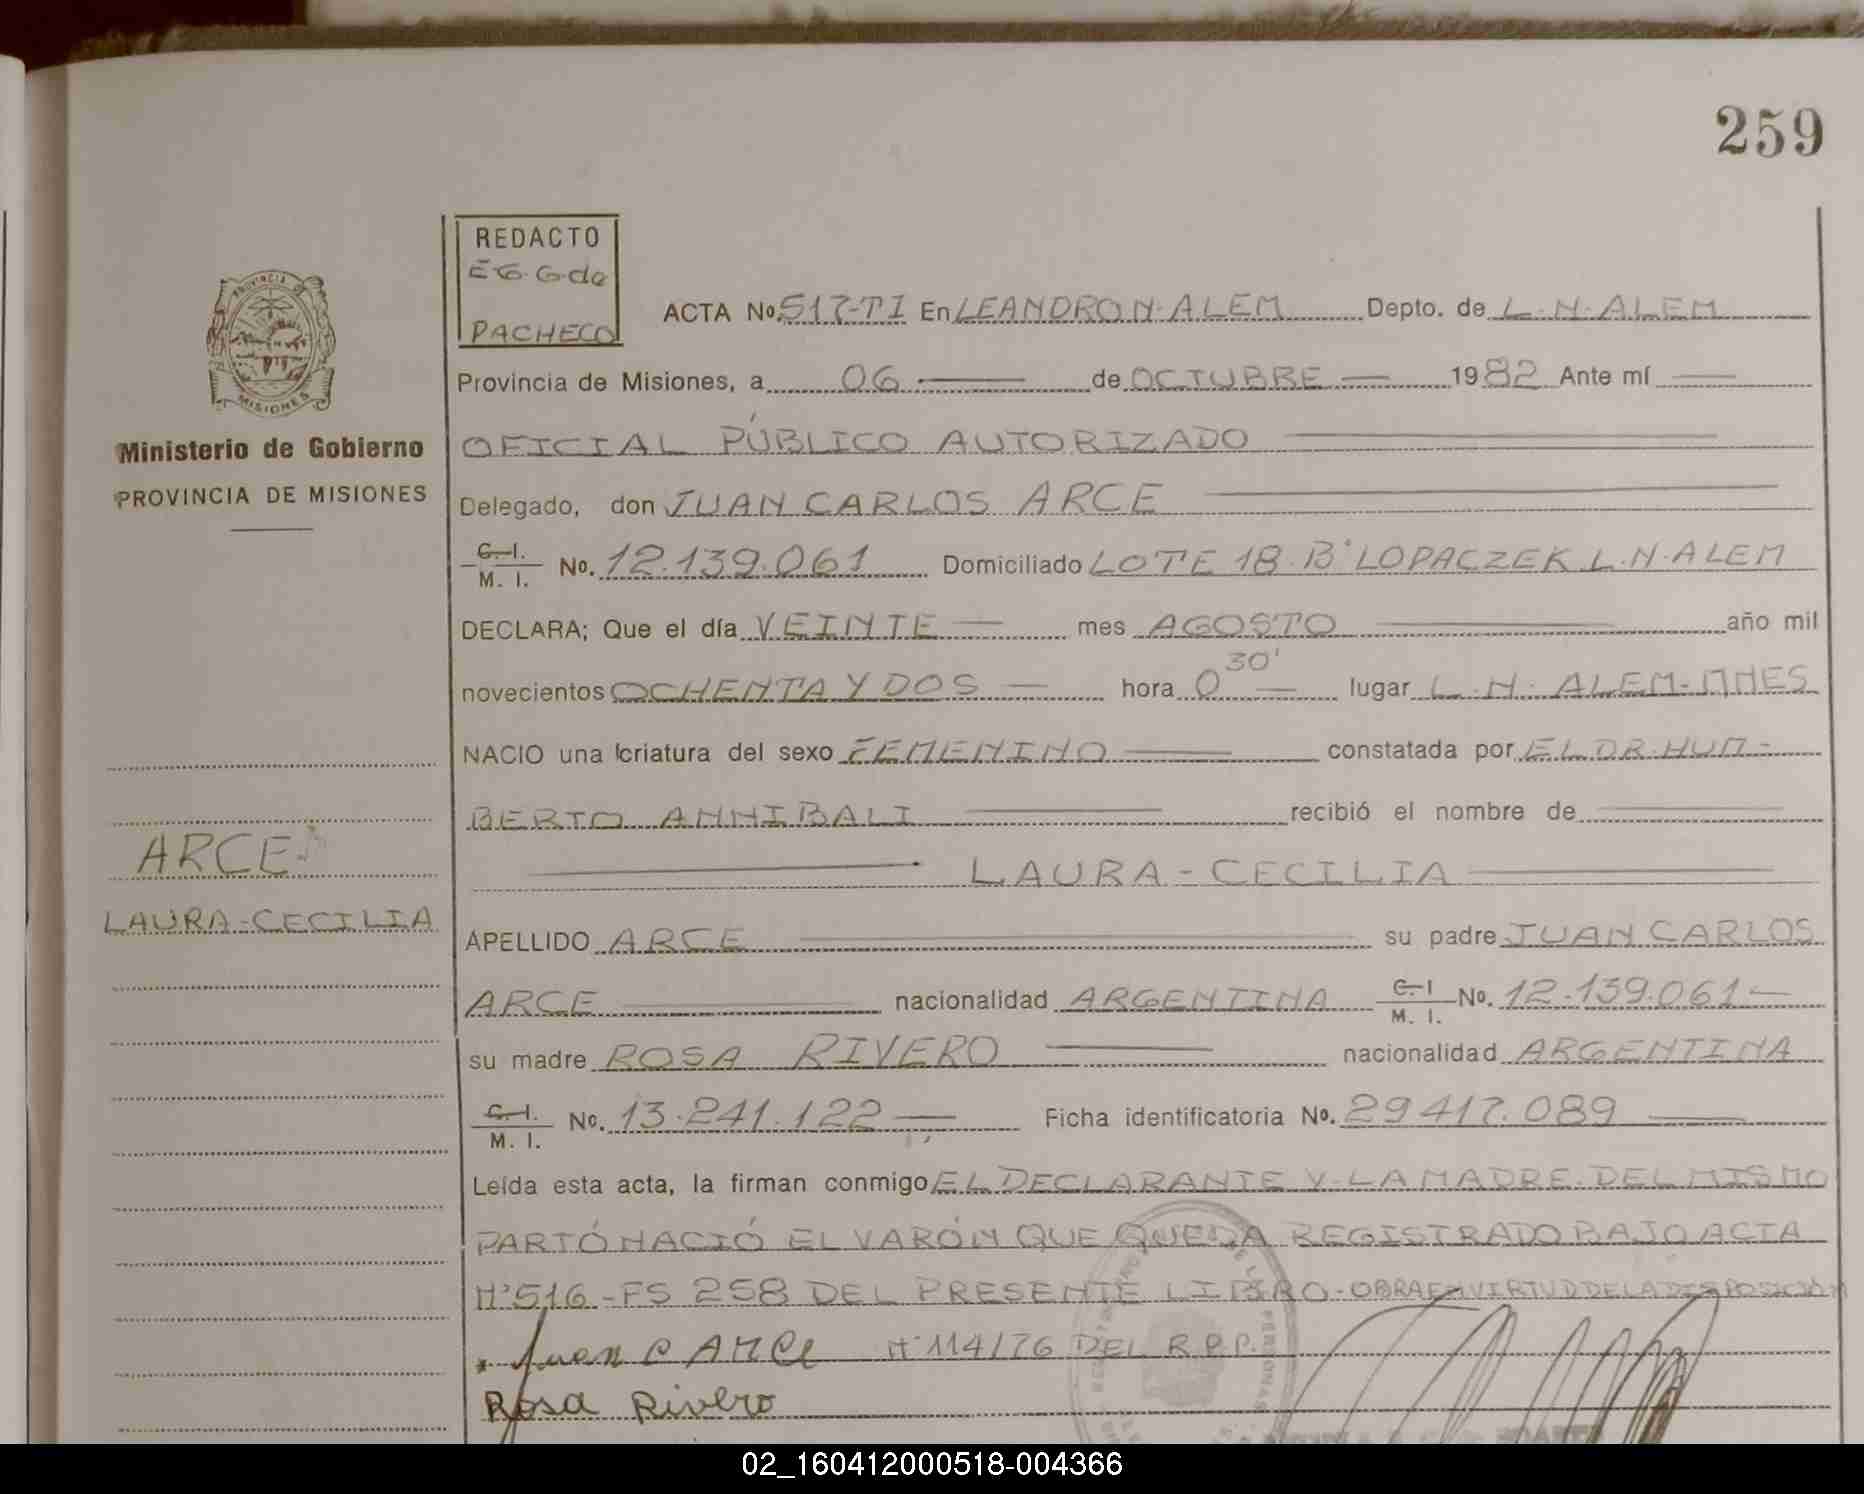 259
REDACTO
EG. G de
PACHECO
ACTA No. 517-TI En LEANDRO N. ALEM Depto. de L. N. ALEM
Provincia de Misiones, a 06 de OCTUBRE 1982 Ante mí
Ministerio de Gobierno
PROVINCIA DE MISIONES
OFICIAL PÚBLICO AUTORIZADO
Delegado, don JUAN CARLOS ARCE
C. I. M. I. No. 12.139.061 Domiciliado LOTE 18. B° LOPACZEK L.N. ALEM
DECLARA; Que el día VEINTE mes AGOSTO año mil
novecientos OCHENTA Y DOS hora 0 30' lugar L. N. ALEM-MNES
NACIO una criatura del sexo FEMENINO constatada por EL DR. HUM-
BERTO ANNIBALI recibió el nombre de
LAURA-CECILIA
ARCE
LAURA-CECILIA
APELLIDO ARCE su padre JUAN CARLOS
ARCE nacionalidad ARGENTINA C. I M. I. No. 12.139.061
su madre ROSA RIVERO nacionalidad ARGENTINA
C. I. M. I. No. 13.241.122 Ficha identificatoria No. 29417.089
Leída esta acta, la firman conmigo EL DECLARANTE Y LA MADRE. DEL MISMO
PARTO NACIÓ EL VARÓN QUE QUEDA REGISTRADO BAJO ACTA
N° 516 - FS 258 DEL PRESENTE LIBRO - OBRA EN VIRTUD DE LA DISPOSICIÓN
Juan C ARCE N° 114/76 DEL R.P.P.
Rosa Rivero
02_160412000518-004366